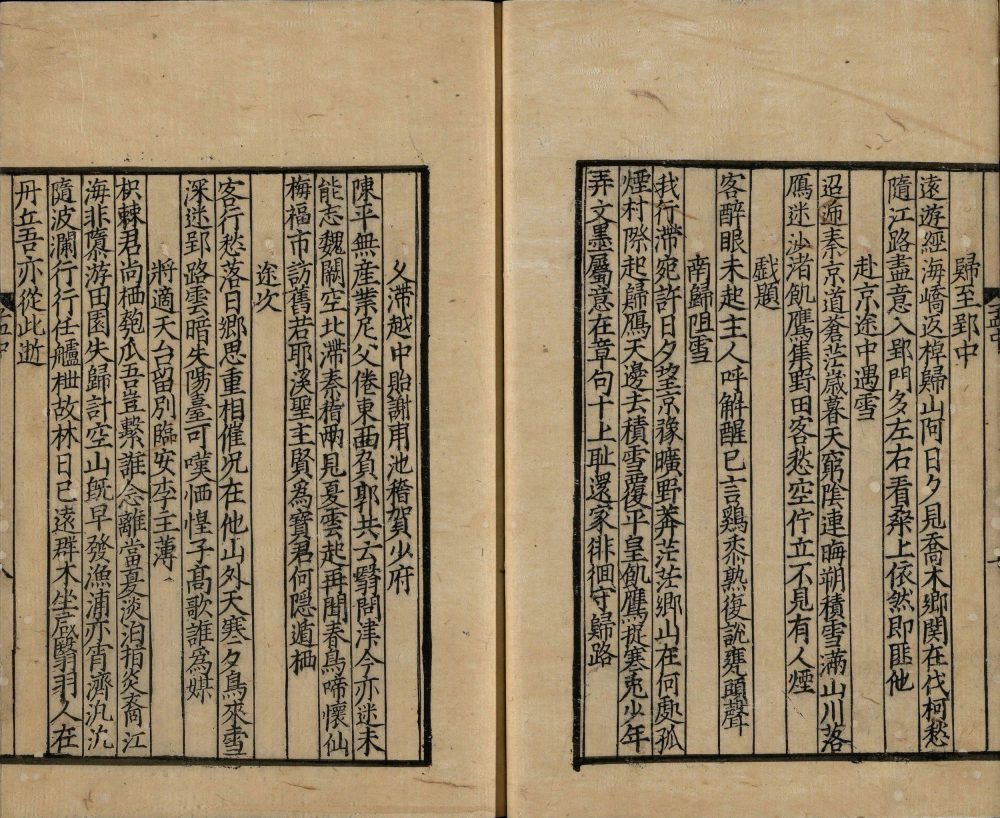 歸至郢中
遠遊經海嶠返棹歸山阿日夕見喬木鄉関在伐柯愁
隨江路盡意入郢門多左右看桑上依然即匪他
赴京途中遇雪
迢遞秦京道蒼茫歲暮天窮陰連晦朔積雪滿山川落
鴈迷沙渚飢鷹集野田客愁空佇立不見有人煙
戲題
客醉眼未起主人呼解醒已言鷄黍熟復說甕頭聲
南歸阻雪
我行滯宛許日夕望京豫曠野莽茫茫鄉山在何處孤
煙村際起歸鴈天邊去積雪覆平皇飢鷹捉寒兎少年
弄文墨屬意在章句十上耻還家徘徊守歸路
乆滯越中貽謝甫池稽賀少府
陳平無産業尼父倦東西負郭共云翳問津今亦迷未
能忘魏闕空北滯秦稽兩見夏雲起再聞春鳥啼懷仙
梅福市訪舊若耶溪聖主賢爲寳君何隱遁栖
途次
客行愁落日鄉思重相催况在他山外天寒夕鳥來雪
深迷郢路雲暗失陽臺可嘆恓惶子高歌誰爲媒
將適天台留別臨安李主薄
枳棘君尚栖匏瓜吾豈繫誰念離當夏淡泊指炎裔江
海非隳游田園失歸計空山旣早發漁浦亦宵濟汎沈
隨波瀾行行任艫枻故林日已遠群木坐成翳羽人在
丹丘吾亦從此逝